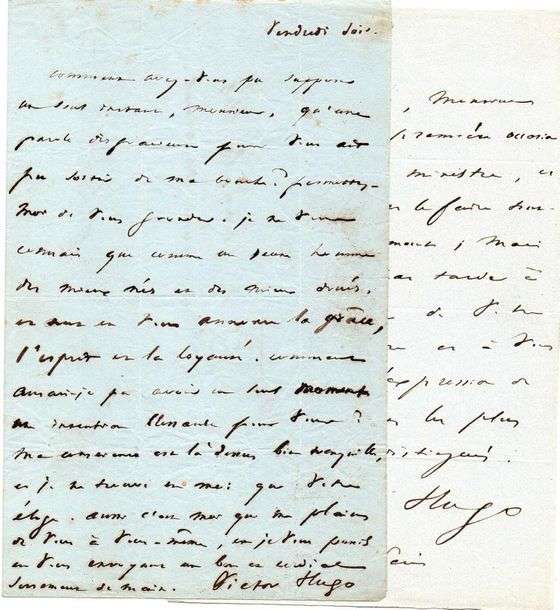 Vendredi soir.
comment avez-vous pu supposer
un seul instant, monsieur, qu'une
parole disgracieuse pour vous ait
pu sortir de ma bouche? permettez-
moi de vous gronder. je ne vous
connais que comme un jeune homme
des mieux nés et des mieux doués,
et tout en vous annonce la grâce,
l'esprit et la loyauté. comment
aurais-je pu avoir un seul moment
une intention blessante pour vous?
ma conscience est là-dessus bien tranquille,
et je ne trouve en moi que votre
éloge. aussi c'est moi qui me plains
de vous à vous-même, et je vous punis
en vous envoyant un bon et cordial
serrement de main. Victor Hugo
, Monsieur
première occasion
ministre, et
le faire
; mais
tarde à
de votre
et à vous
expression de
les plus
distingués.
Hugo